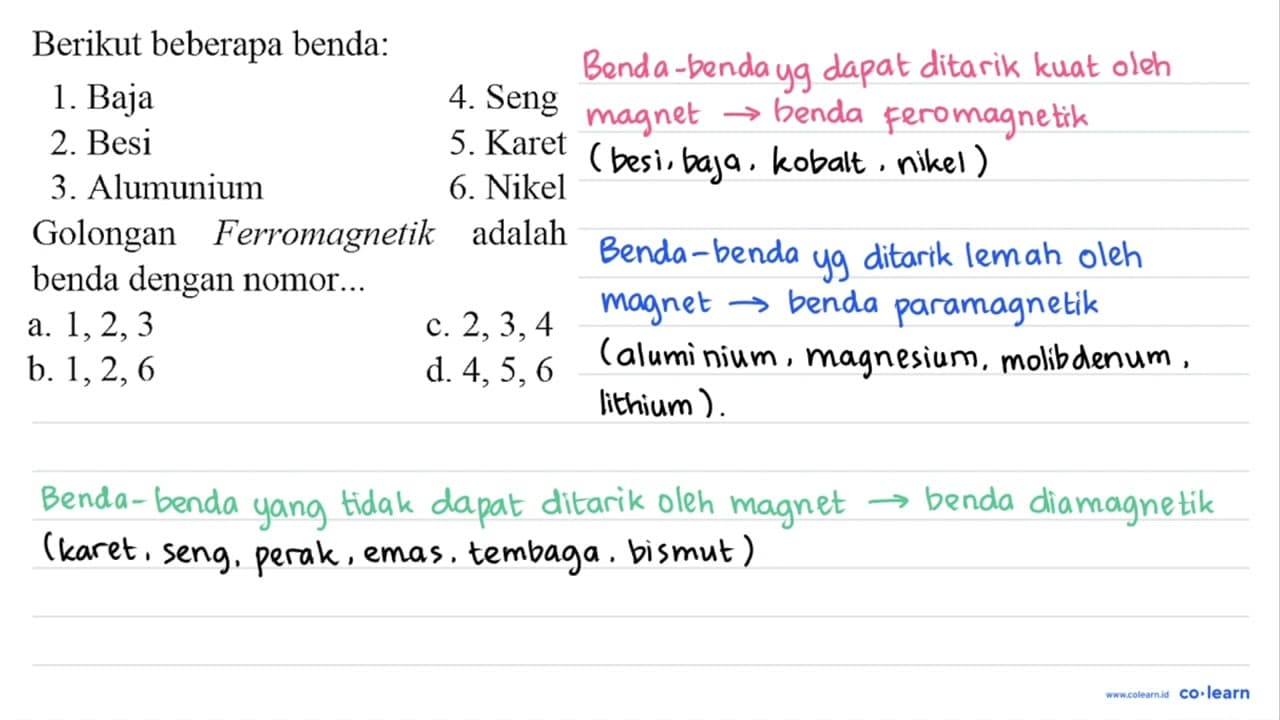 Berikut beberapa benda:
1. Baja 4. Seng
2. Besi 5. Karet
3. Alumunium 6. Nikel
Golongan Ferromagnetik adalah
benda dengan nomor...
a. 1, 2, 3 c. 2, 3, 4
b. 1, 2, 6 d. 4, 5, 6
Benda-benda yg dapat ditarik kuat oleh
magnet → benda feromagnetik
(besi, baja, kobalt, nikel)
Benda-benda yg ditarik lemah oleh
magnet → benda paramagnetik
(aluminium, magnesium, molibdenum,
lithium).
Benda-benda yang tidak dapat ditarik oleh magnet → benda diamagnetik
(karet, seng, perak, emas, tembaga, bismut)
www.colearn.id co·learn